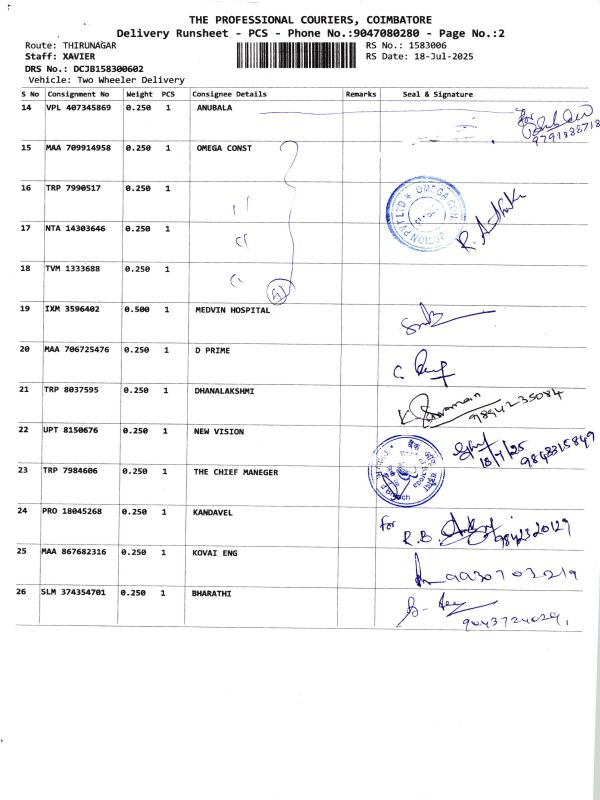 THE PROFESSIONAL COURIERS, COIMBATORE
Delivery Runsheet - PCS - Phone No.:9047080280 - Page No.:2
Route: THIRUNAGAR RS No.: 1583006
Staff: XAVIER RS Date: 18-Jul-2025
DRS No.: DCJB158300602
Vehicle: Two Wheeler Delivery
S No Consignment No Weight PCS Consignee Details Remarks Seal & Signature
14 VPL 407345869 0.250 1 ANUBALA
For
9791888718
15 MAA 709914958 0.250 1 OMEGA CONST
16 TRP 7990517 0.250 1
17 NTA 14303646 0.250 1
18 TVM 1333688 0.250 1
19 IXM 3596402 0.500 1 MEDVIN HOSPITAL
20 MAA 706725476 0.250 1 D PRIME
21 TRP 8037595 0.250 1 DHANALAKSHMI
9894235084
22 UPT 8150676 0.250 1 NEW VISION
18/7/25 9843315849
23 TRP 7984606 0.250 1 THE CHIEF MANEGER
24 PRO 18045268 0.250 1 KANDAVEL
For R.B. 9842320129
25 MAA 867682316 0.250 1 KOVAI ENG
9030703219
26 SLM 374354701 0.250 1 BHARATHI
9043724029